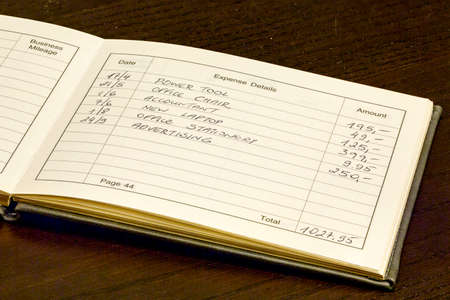 Business
Mileage
Date Expense Details Amount
11/4 POWER TOOL 195,-
OFFICE CHAIR 49,-
ACCOUNTANT 125,-
NEW LAPTOP 399,-
1/8 OFFICE STATIONERY 9.95
ADVERTISING 250,-
Page 44
Total 1027.95